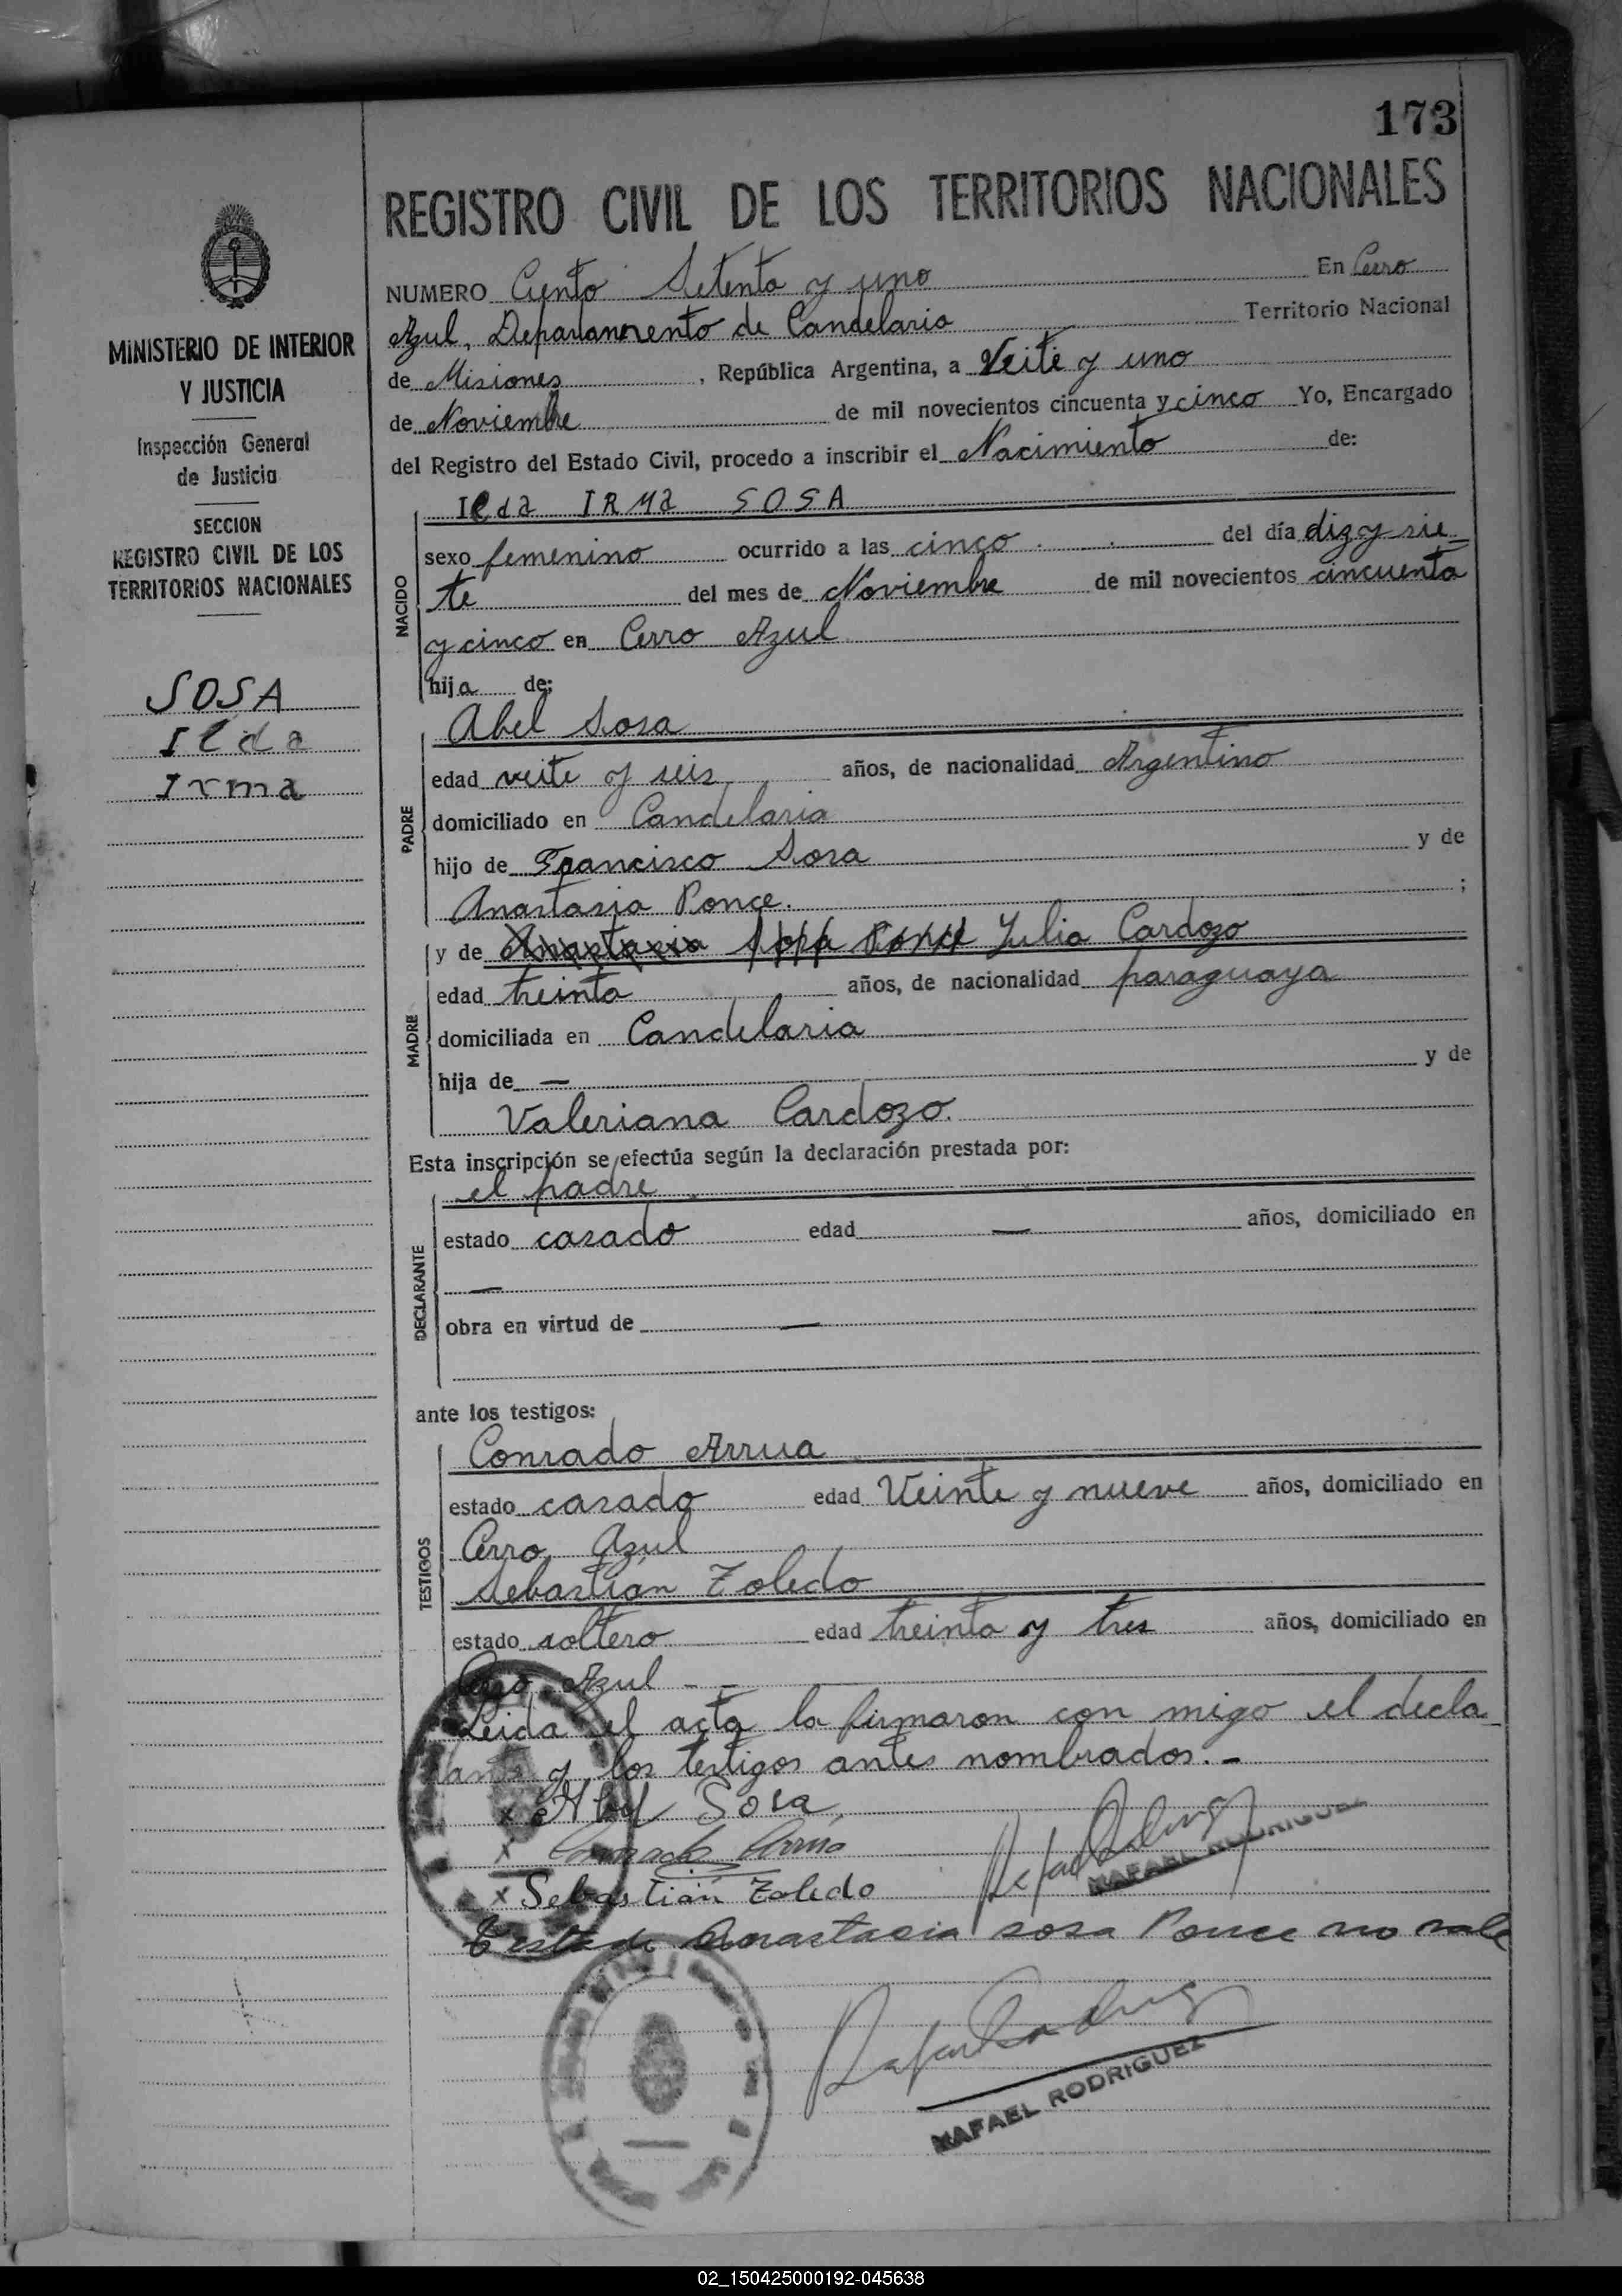 173
REGISTRO CIVIL DE LOS TERRITORIOS NACIONALES
MINISTERIO DE INTERIOR
Y JUSTICIA
Inspección General
de Justicia
SECCION
REGISTRO CIVIL DE LOS
TERRITORIOS NACIONALES
SOSA
Ilda
Irma
NUMERO Ciento Setenta y uno En Cerro
Azul, Departamento de Candelaria Territorio Nacional
de Misiones, República Argentina, a Veite y uno
de Noviembre de mil novecientos cincuenta y cinco Yo, Encargado
del Registro del Estado Civil, procedo a inscribir el Nacimiento de:
NACIDO
Ilda IRMa SOSA
sexo femenino ocurrido a las cinco del día diz y sie-
te del mes de Noviembre de mil novecientos cincuenta
y cinco en Cerro Azul
hija de:
PADRE
Abel Sosa
edad veite y seis años, de nacionalidad Argentino
domiciliado en Candelaria
hijo de Francisco Sosa y de
Anastasia Ponce. ;
MADRE
y de Anastasia Sosa Ponce Julia Cardozo
edad treinta años, de nacionalidad paraguaya
domiciliada en Candelaria
hija de — y de
Valeriana Cardozo.
Esta inscripción se efectúa según la declaración prestada por:
DECLARANTE
el padre
estado casado edad — años, domiciliado en
—
obra en virtud de —
ante los testigos:
TESTIGOS
Conrado Arrua
estado casado edad Veinte y nueve años, domiciliado en
Cerro Azul
Sebastián Toledo
estado soltero edad treinta y tres años, domiciliado en
Cerro Azul - -
Leida el acta la firmaron con migo el decla-
rante y los testigos antes nombrados. -
x Abel Sosa
x Conrado Arrua
RAFAEL RODRIGUEZ
x Sebastián Toledo
Testado Anastacia sosa Ponce no vale
RAFAEL RODRIGUEZ
02_150425000192-045638